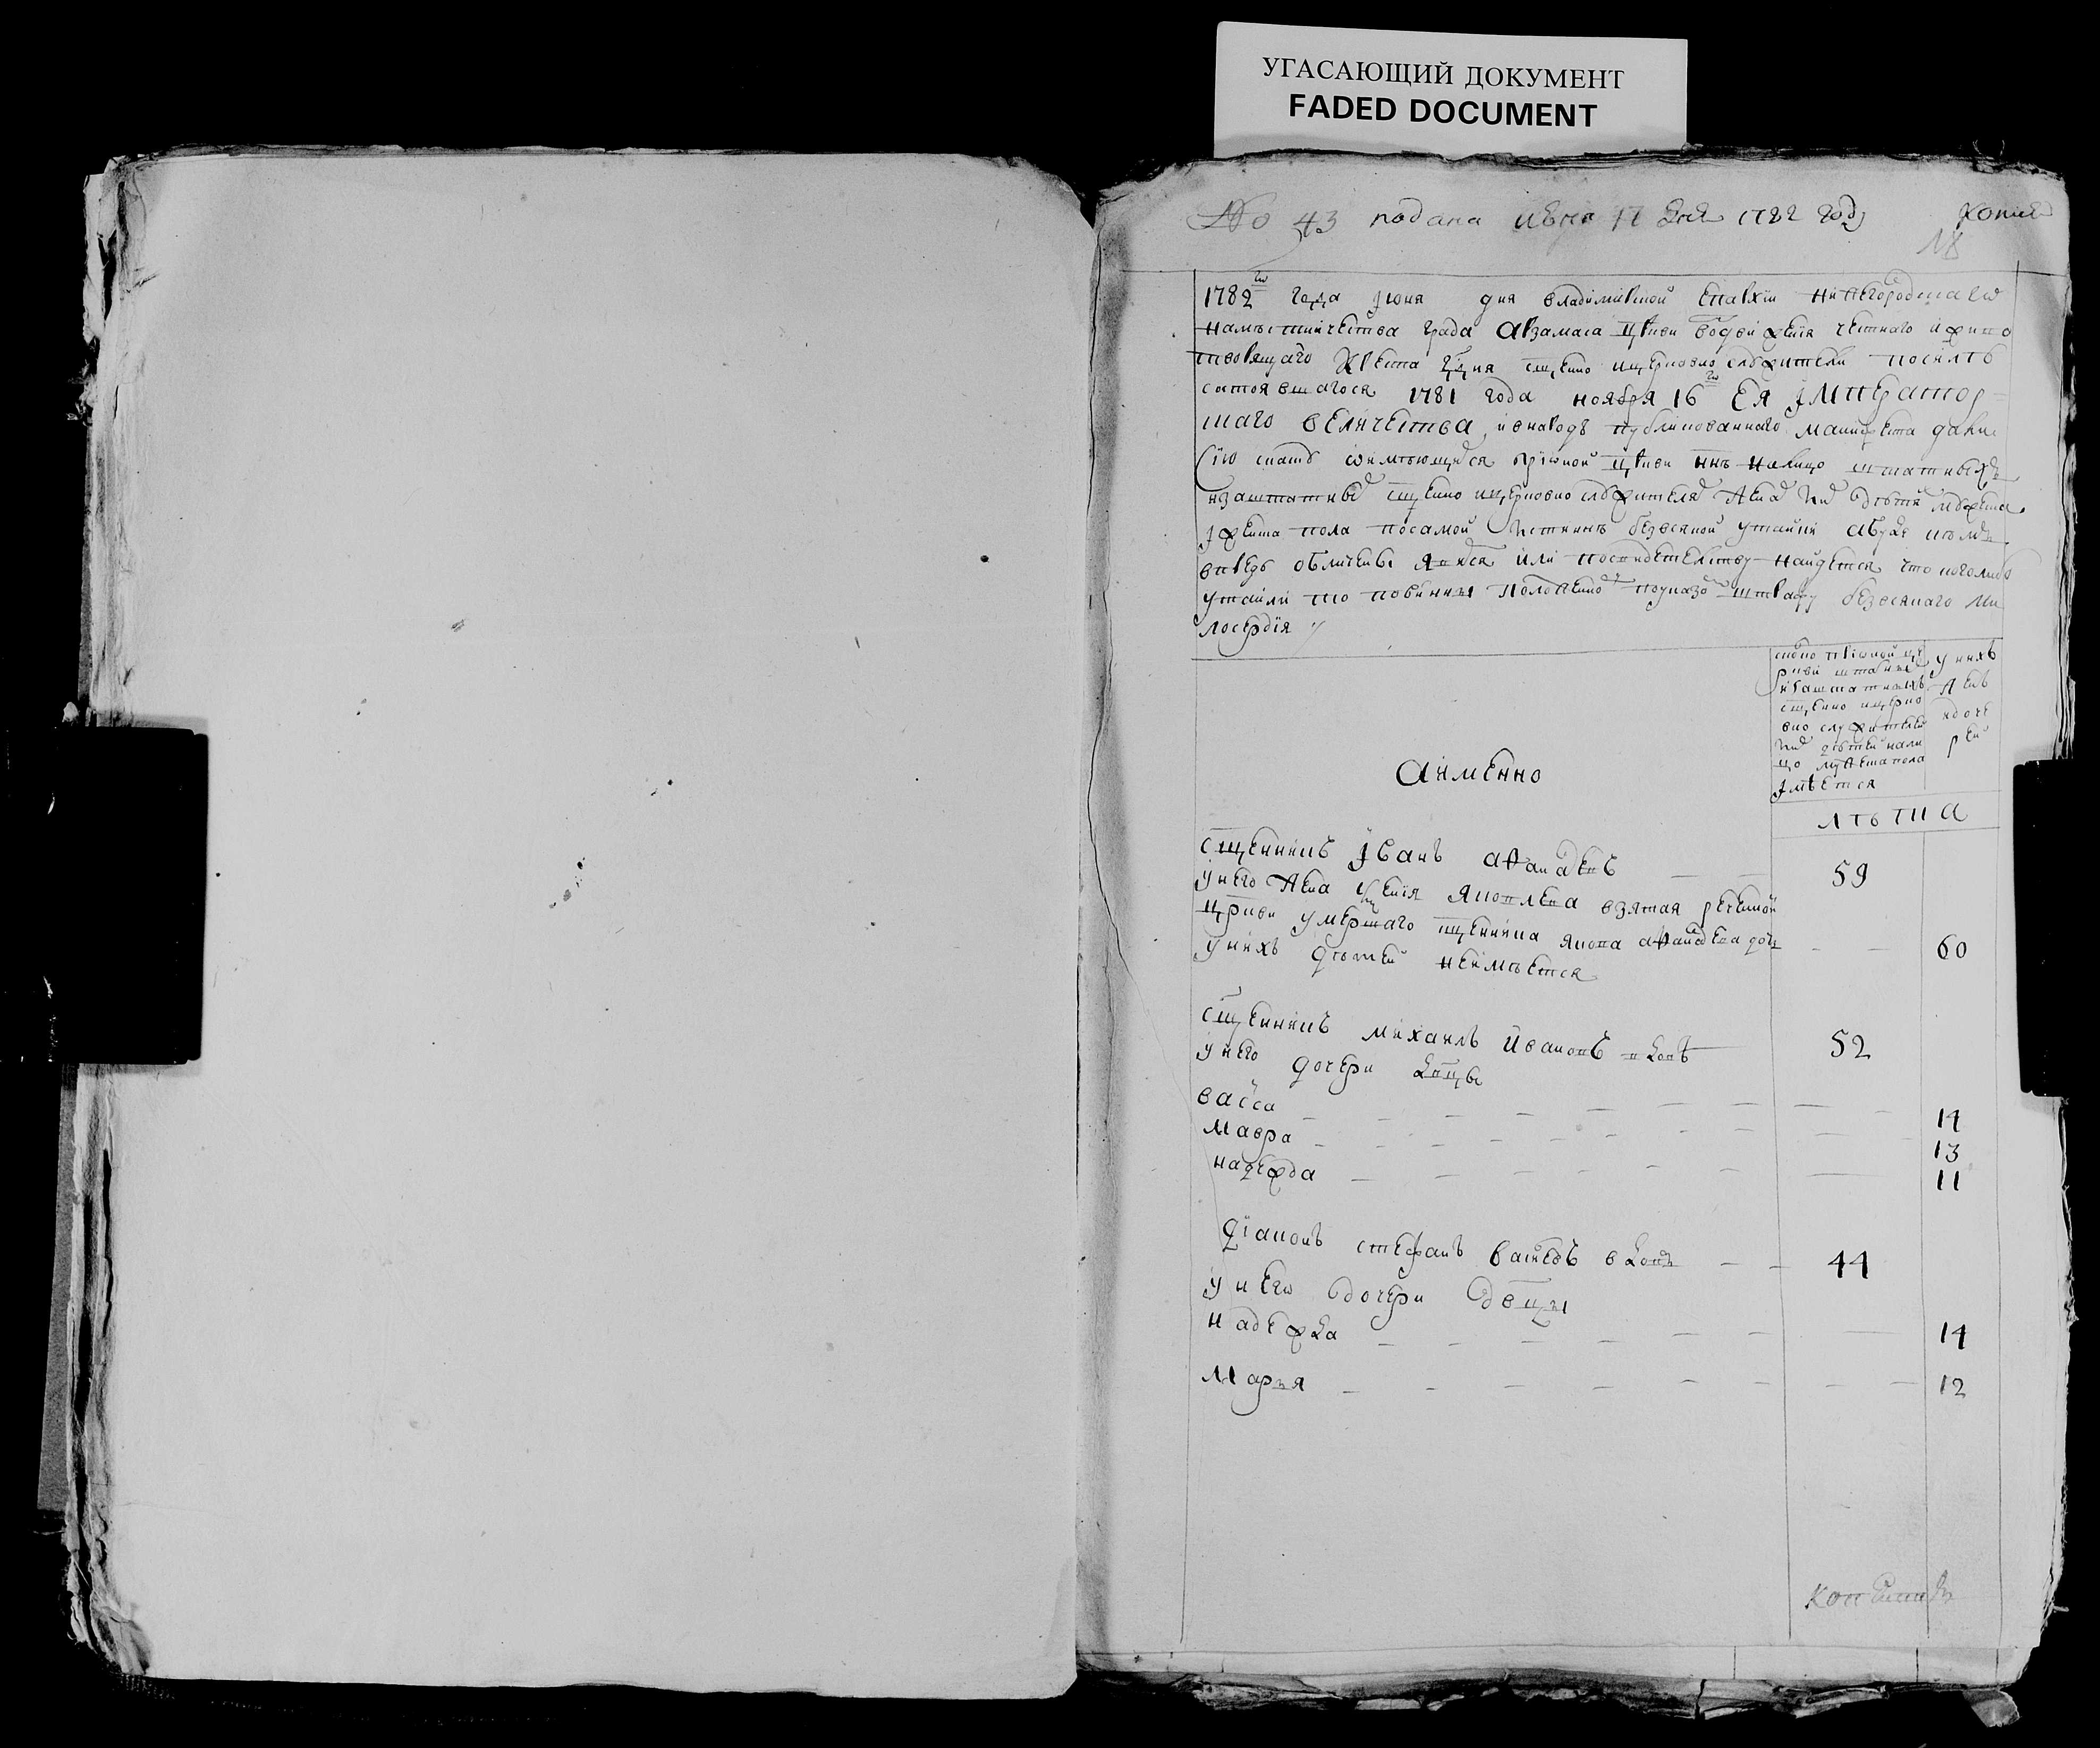 УГАСАЮЩИЙ ДОКУМЕНТ
FADED DOCUMENT
No 43 подана июня 17 дня 1782 году копия
18
1782 го года Июня дня владимирской епархии нижегородскаго
намѣстничества града арзамаса цркви воздвиженія честнаго и живо
творящаго Креста Гдня сщенно и церковно служители по силѣ
состоявшагося 1781 года ноября 16 го Ея Імператор
скаго величества и внародъ публикованнаго манифеста дали
сію сказку о имѣющихся при оной цркви ннѣ налицо штатныхъ
и заштатныхъ сщенно и церковно служителяхъ женахъ ихъ дѣтяхъ мужеска
и женска пола по самой истиннѣ без всякой утайки а буде по комъ
впредь обличены явимся или по свидетелству найдется что кого либо
утаили то повинны положенному по указомъ штрафу без всякаго ми
лосердія
сколко при оной це
ркви штатныхъ
и заштатныхъ
сщенно и церко
вно служителей
и ихъ дѣтей нали
цо мужеска пола
Имѣется
у нихъ
женъ
и доче
рей
Аимменно
лѣта
сщенникъ Іванъ аѳанасьевъ — — 59
у него жена ксенія яковлева взятая реченной
цркви умершаго сщенника якова аѳанасьева дочь — — 60
у нихъ дѣтей неимѣется
сщенникъ михаилъ Ивановъ вдовъ 52
у него дочери двцы
васса — — — 14
Мавра — — — 13
надежда — — — 11
діаконъ стефанъ васильевъ вдовъ — — 44
у него дочери двцы
надежда — — — 14
Марья — — — 12